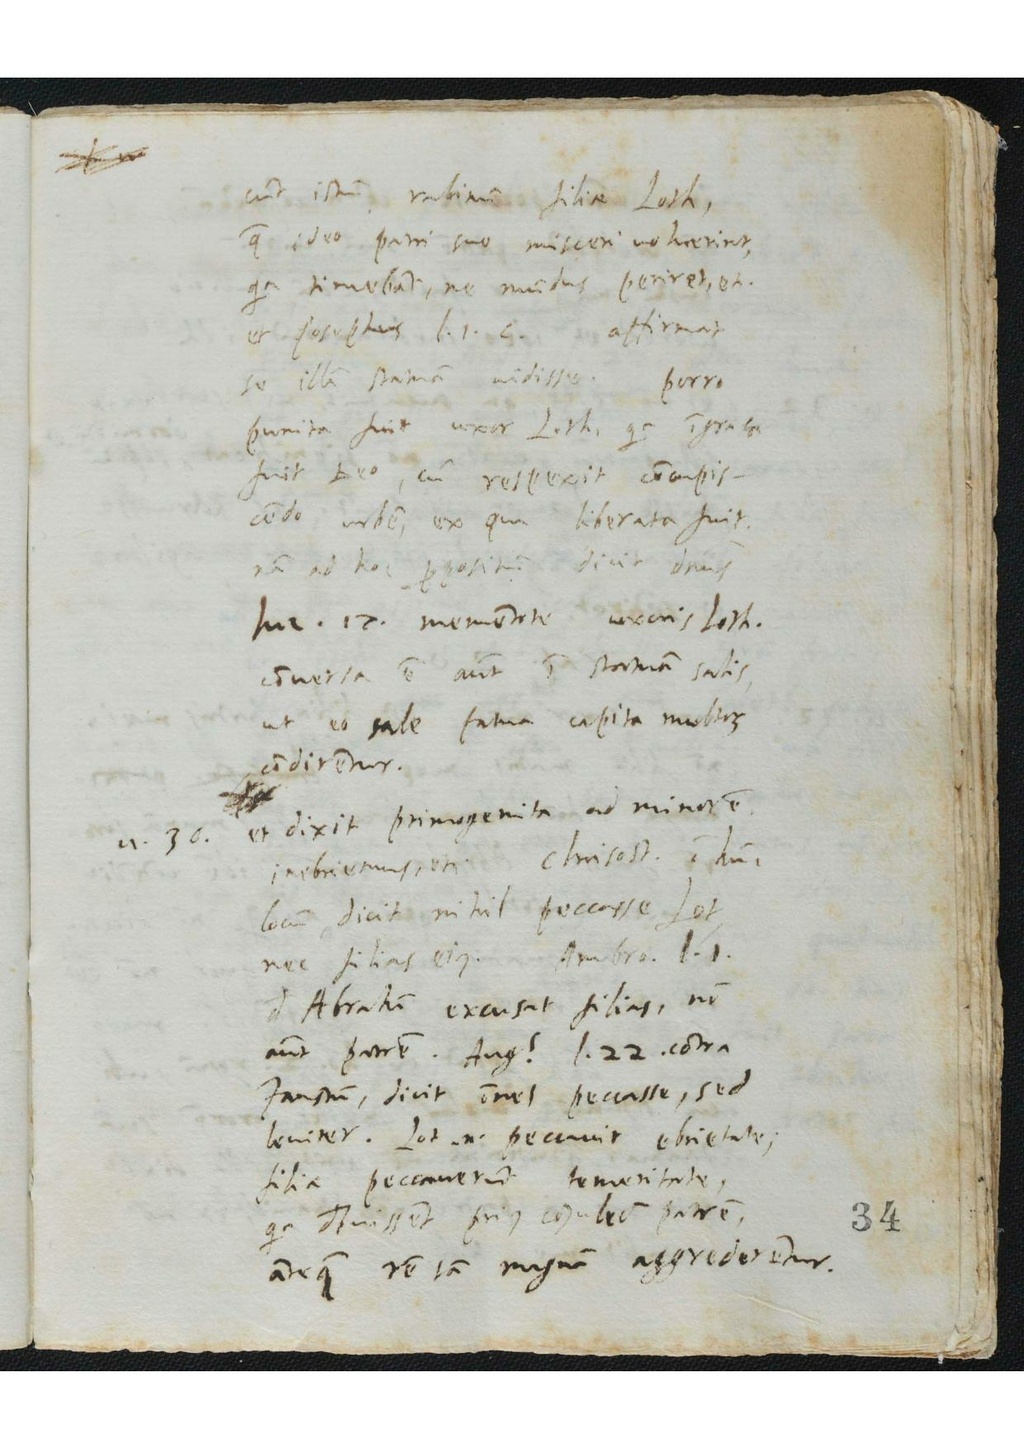 cūt istū rabinū filiae Loth,
q̄ ideo patri suo misceri uoluerint,
qa timebāt, ne mūdus periret, et.
et Josephus l. 1. c. affirmat
se illā statuā uidisse. porro
punita fuit uxor Loth, qa īgrata
fuit Deo, cū respexit cōcupis-
cēdo urbē, ex qua liberata fuit.
nā ad hoc ꝓpositū dicit dnūs
luc. 17. memētote uxoris Loth.
cōuersa ē aūt ī statuā salis,
ut eo sale fatua capita multoꝝ
cōdirētur.
u. 30. et dixit primogenita ad minorē
inebriemus, etc. Chrisost. ī hūc
locū dicit nihil peccasse Lot
nec filias eiꝰ. Ambro. l. 1.
d Abrahā excusat filias, nō
aūt patrē. Aug. l. 22. cōtra
Faustū, dicit ōnes peccasse, sed
leuiter. Lot .n. peccauit ebrietate;
filiae peccauerūt temeritate,
qa dbuissēt priꝰ cōsulere patrē,
āteq̄ rē tā magnā aggrederētur.
34